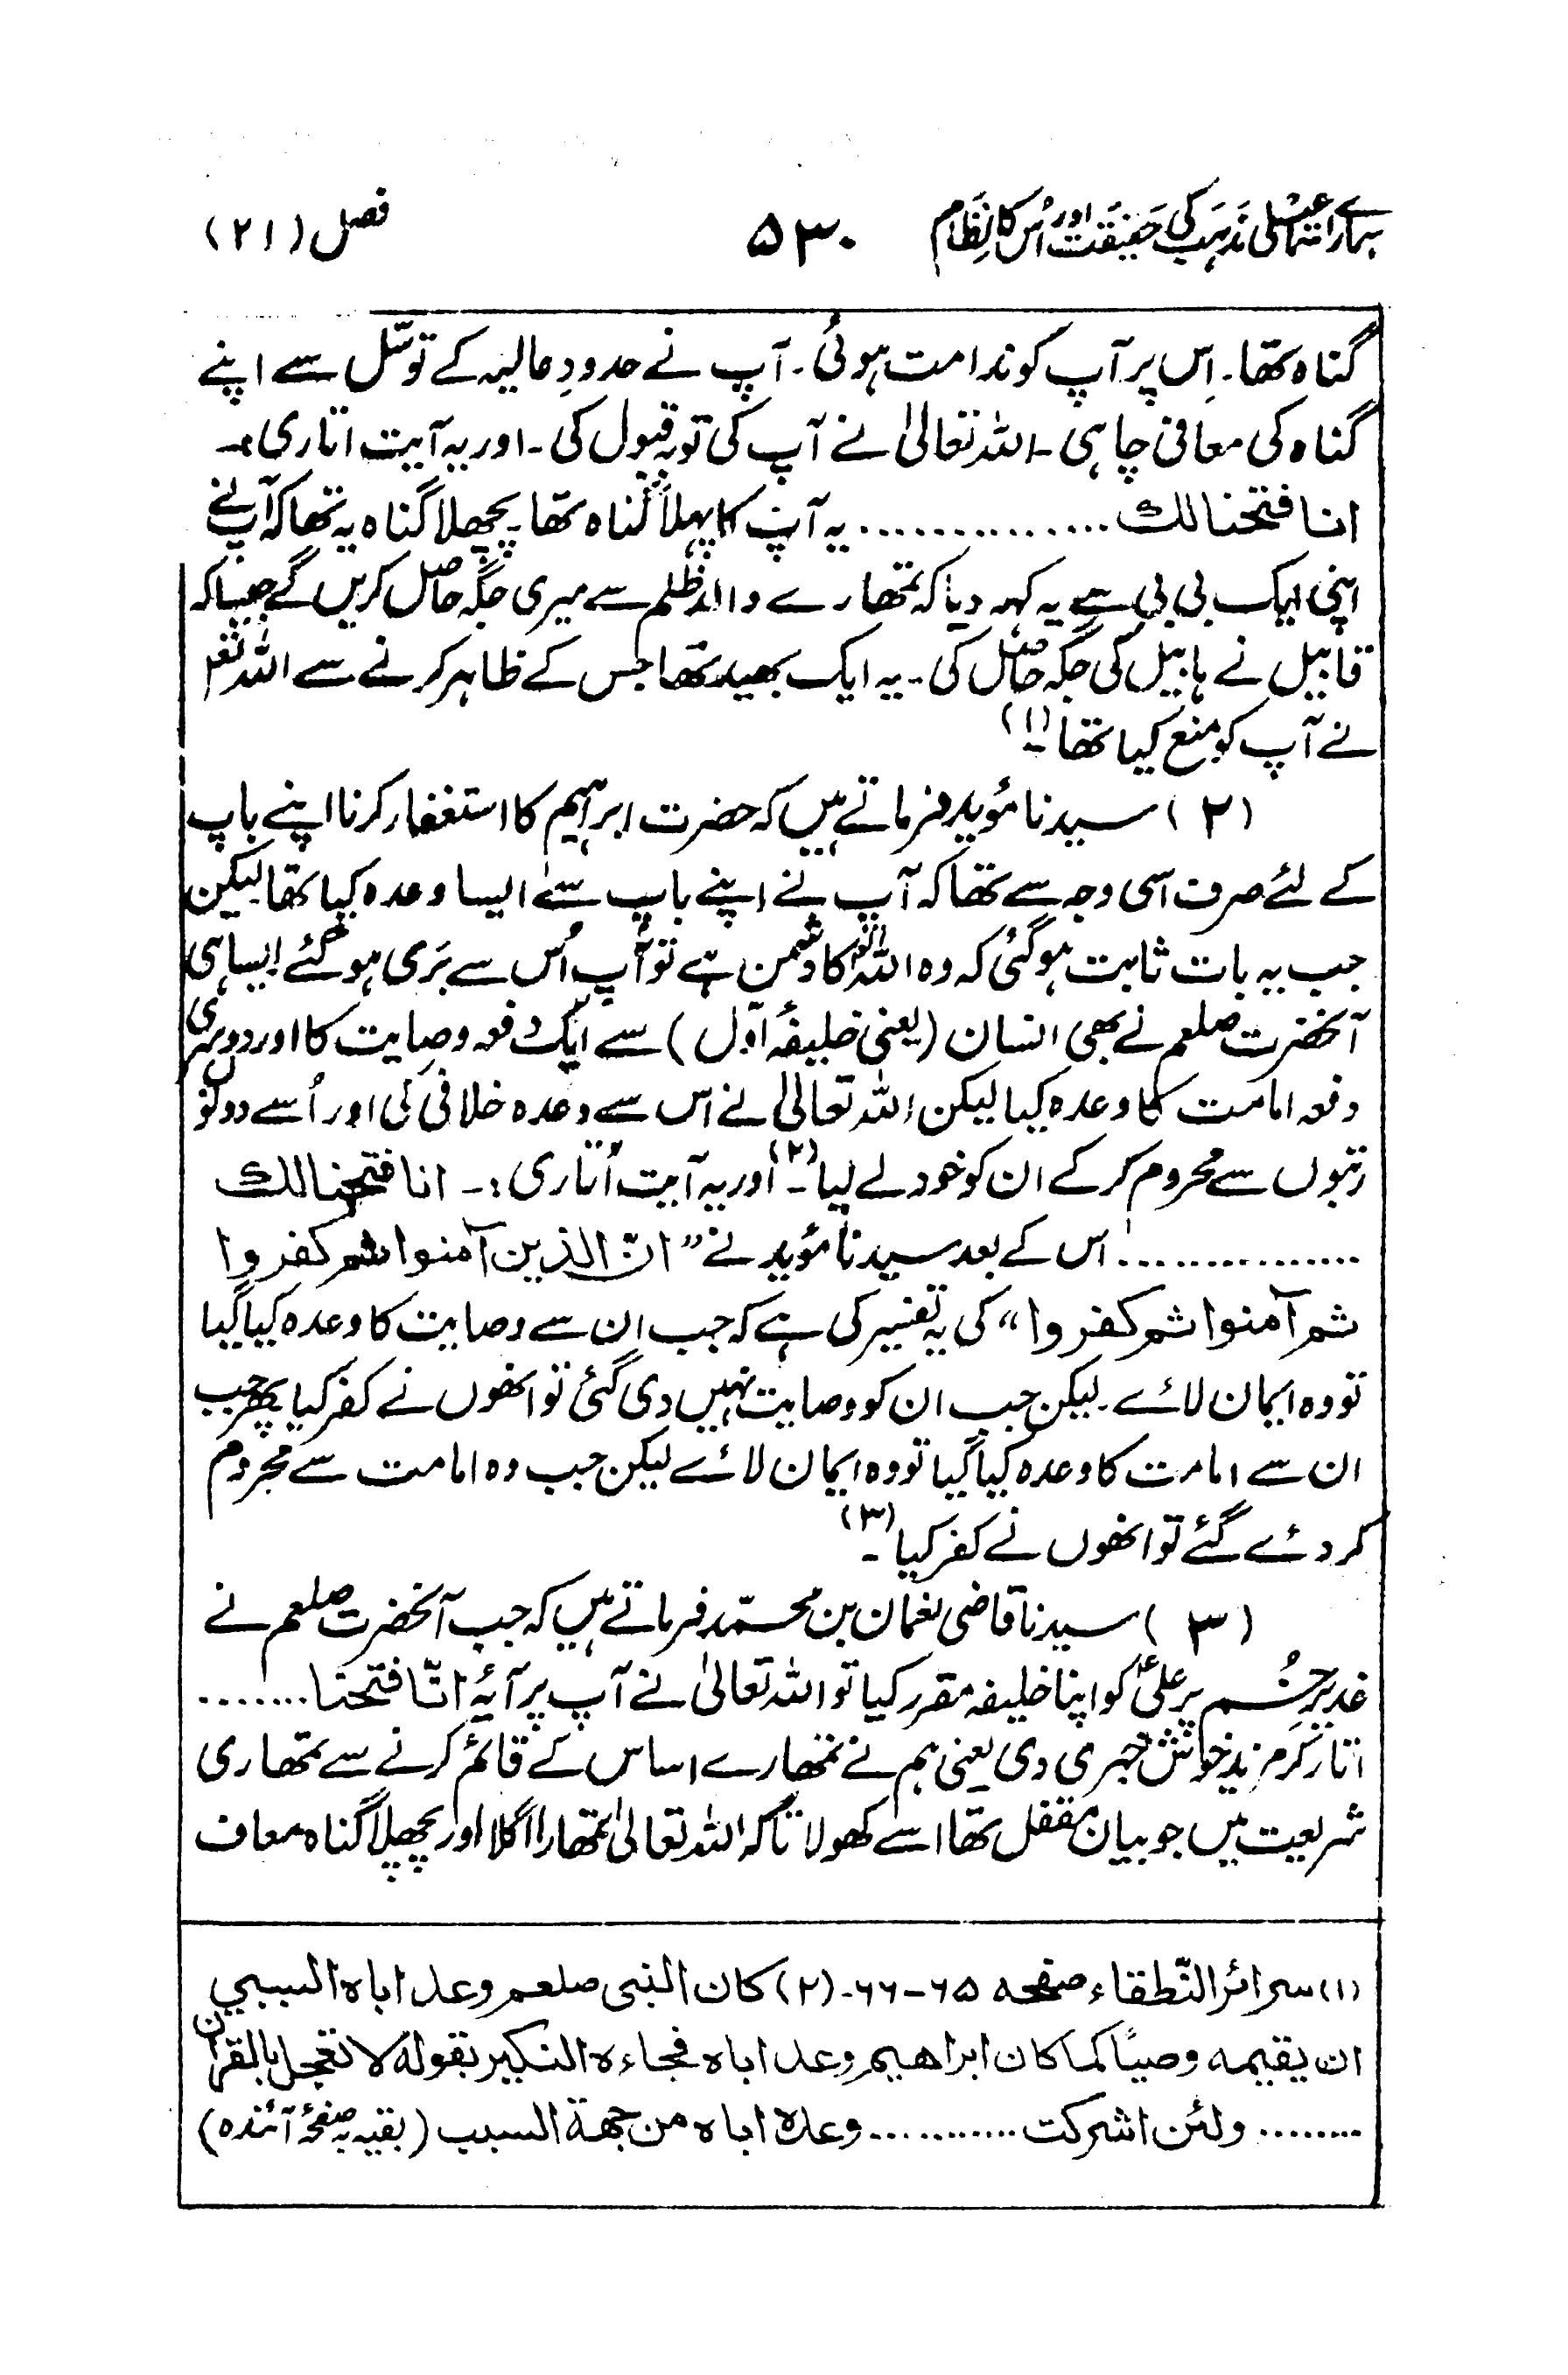 ہمارے اسماعیلی مذہب کی حقیقت اور اُس کا نظام ۵۳۰ فصل (۲۱)
گناہ تھا۔ اِس پر آپ کو ندامت ہوئی۔ آپ نے حدودِ عالیہ کے توسّل سے اپنے
گناہ کی معافی چاہی۔ اللہ تعالیٰ نے آپ کی توبہ قبول کی۔ اور یہ آیت اتاری:۔
انا فتحنا لك .............. یہ آپ کا پہلا گناہ تھا۔ پچھلا گناہ یہ تھا کہ آپ نے
اپنی ایک بی بی سے یہ کہہ دیا کہ تمھارے والد ظلم سے میری جگہ حاصل کریں گے جیسا کہ
قابیل نے ہابیل کی جگہ حاصل کی۔ یہ ایک بھید تھا جس کے ظاہر کرنے سے اللہ تعٰ
نے آپ کو منع کیا تھا۔(۱)
(۲) سیدنا مؤید فرماتے ہیں کہ حضرت ابراہیم کا استغفار کرنا اپنے باپ
کے لئے صرف اسی وجہ سے تھا کہ آپ نے اپنے باپ سے ایسا وعدہ کیا تھا۔ لیکن
جب یہ بات ثابت ہو گئی کہ وہ اللہ کا دشمن ہے تو آپ اُس سے بَری ہو گئے ایسا ہی
آنحضرت صلعم نے بھی انسان (یعنی خلیفۂ اوّل) سے ایک دفعہ وصایت کا اور دوسری
دفعہ امامت کا وعدہ کیا لیکن اللہ تعالیٰ نے اس سے وعدہ خلافی کی اور اُسے دونوں
رتبوں سے محروم کر کے ان کو خود لے لیا۔(۲) اور یہ آیت اُتاری:۔ انا فتحنا لك
................ اس کے بعد سیدنا مؤید نے ”انّ الذین آمنوا ثم کفروا
ثم آمنوا ثم کفروا“ کی یہ تفسیر کی ہے کہ جب ان سے وصایت کا وعدہ کیا گیا
تو وہ ایمان لائے۔ لیکن جب ان کو وصایت نہیں دی گئی تو انھوں نے کفر کیا پھر جب
ان سے امامت کا وعدہ کیا گیا تو وہ ایمان لائے لیکن جب وہ امامت سے محروم
کر دئے گئے تو انھوں نے کفر کیا۔(۳)
(۳) سیدنا قاضی نعمان بن محمّد فرماتے ہیں کہ جب آنحضرت صلعم نے
غدیر خُم پر علیؑ کو اپنا خلیفہ مقرر کیا تو اللہ تعالیٰ نے آپ پر آیۂ انّا فتحنا .......
اتار کر مزید خوش خبری دی یعنی ہم نے تمھارے اساس کے قائم کرنے سے تمھاری
شریعت میں جو بیان مقفل تھا اسے کھولا تاکہ اللہ تعالیٰ تمھارا اگلا اور پچھلا گناہ معاف
(۱) سرائر النّطقاء صفحه ۶۵-۶۶۔ (۲) کان النبی صلعم وعد اباه السببی
ان یقیمه وصیًا کما کان ابراهیم وعد اباه فجاءه النکیر بقوله لا تعجل بالقرآن
........ ولئن اشرکت .......... وعده اباه من جهة السبب (بقیہ بہ صفحۂ آئندہ)